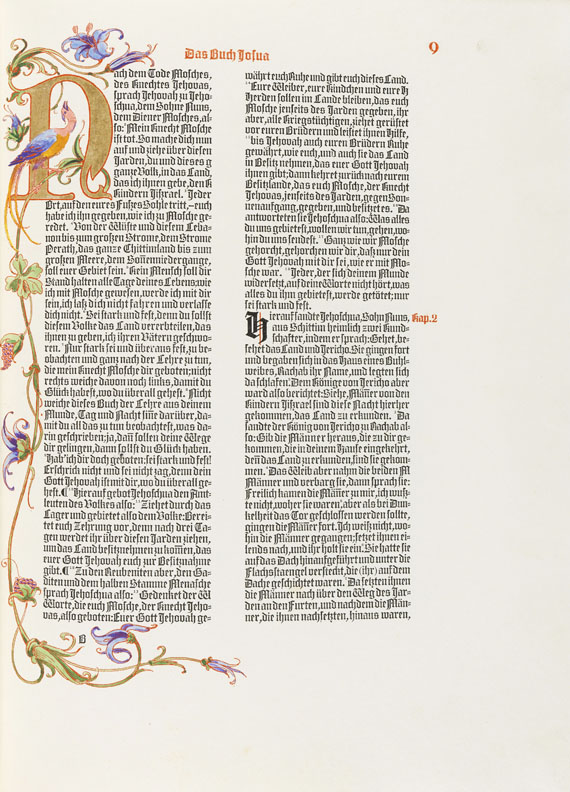 Das Buch Josua
9
Nach dem Tode Mosches,
sprach Jehovah zu Jeho-
schua, dem Sohne Nuns,
dem Diener Mosches, al-
so: Mein Knecht Mosche
ist tot. So mache dich nun
auf und ziehe über diesen
Jarden, du und dieses g
ganze Volk, in das Land,
das ich ihnen gebe, den K
Kindern Jisrael. Jeder
Ort, auf den eures Fußes Sohle tritt, – euch
habe ich ihn gegeben, wie ich zu Mosche ge-
redet. Von der Wüste und diesem Leba-
non bis zum großen Strome, dem Strome
Perath, das ganze Chittimland bis zum
großen Meere, dem Sonnenniedergange,
soll euer Gebiet sein. Kein Mensch soll dir
Stand halten alle Tage deines Lebens; wie
ich mit Mosche gewesen, werde ich mit dir
sein, ich laß dich nicht fahren und verlasse
dich nicht. Sei stark und fest, denn du sollst
diesem Volke das Land vererbteilen, das
ihnen zu geben, ich ihren Vätern geschwo-
ren. Nur stark sei und überaus fest, zu be-
obachten und ganz nach der Lehre zu tun,
die mein Knecht Mosche dir geboten; nicht
rechts weiche davon noch links, damit du
Glück habest, wo du überall gehest. Nicht
weiche dies Buch der Lehre aus deinem
Munde, Tag und Nacht sinne darüber, da-
mit du all das zu tun beobachtest, was da-
rin geschrieben; ja, dann sollen deine Wege
dir gelingen, dann sollst du Glück haben.
Hab' ich dir doch geboten: sei stark und fest!
Erschrick nicht und sei nicht zag, denn dein
Gott Jehovah ist mit dir, wo du überall ge-
hest. ¶ Hierauf gebot Jehoschua den Amt-
leuten des Volkes also: Ziehet durch das
Lager und gebietet also dem Volke: Berei-
tet euch Zehrung vor, denn nach drei Ta-
gen werdet ihr über diesen Jarden ziehen,
um das Land besitznehmen zu kommen, das
euer Gott Jehovah euch zur Besitznahme
gibt. ¶ Zu den Reubeniten aber, den Ga-
diten und dem halben Stamme Menasche
sprach Jehoschua also: Gedenket der W
Worte, die euch Mosche, der Knecht Jeho-
vas, also geboten: Euer Gott Jehovah ge-
B
währt euch Ruhe und gibt euch dieses Land.
Eure Weiber, eure Kindchen und eure H
Herden sollen im Lande bleiben, das euch
Mosche jenseits des Jarden gegeben, ihr
aber, alle Kriegstüchtigen, ziehet gerüstet
vor euren Brüdern und leistet ihnen Hilfe,
bis Jehovah auch euren Brüdern Ruhe
gewährt, wie euch, und auch sie das Land
in Besitz nehmen, das euer Gott Jehovah
ihnen gibt; dann kehret zurück nach eurem
Besitzlande, das euch Mosche, der Knecht
Jehovas, jenseits des Jarden, gegen Son-
nenaufgang, gegeben, und besitzet es. Da
antworteten sie Jehoschua also: Was alles
du uns gebietest, wollen wir tun, gehen, wo-
hin du uns sendest. Ganz wie wir Mosche
gehorcht, gehorchen wir dir, daß nur dein
Gott Jehovah mit dir sei, wie er mit Mo-
sche war. Jeder, der sich deinem Munde
widersetzt, auf deine Worte nicht hört, was
alles du ihm gebietest, werde getötet; nur
sei stark und fest.
Hierauf sandte Jehoschua, Sohn Nuns, Kap. 2
aus Schittim heimlich zwei Kund-
schafter, indem er sprach: Gehet, be-
sehet das Land und Jericho. Sie gingen fort
und begaben sich in das Haus eines Buhl-
weibes, Rachab ihr Name, und legten sich
da schlafen. Dem Könige von Jericho aber
ward also berichtet: Siehe, Männer von den
Kindern Jisrael sind diese Nacht hierher
gekommen, das Land zu erkunden. Da
sandte der König von Jericho zu Rachab al-
so: Gib die Männer heraus, die zu dir ge-
kommen, die in deinem Hause eingekehrt,
denn das Land zu erkunden, sind sie gekom-
men. Das Weib aber nahm die beiden M
Männer und verbarg sie, dann sprach sie:
Freilich kamen die Männer zu mir, ich wuß-
te nicht, woher sie waren; aber als bei Dun-
kelheit das Tor geschlossen werden sollte,
gingen die Männer fort. Ich weiß nicht, wo-
hin die Männer gegangen; setzet ihnen ei-
lends nach, und ihr holt sie ein. Sie hatte sie
auf das Dach hinaufgeführt und unter die
Flachsstaengel versteckt, die (ihr) auf dem
Dache geschichtet waren. Da setzten ihnen
die Männer nach über den Weg des Jar-
den an den Furten, und nachdem die Män-
ner, die ihnen nachsetzten, hinaus waren,